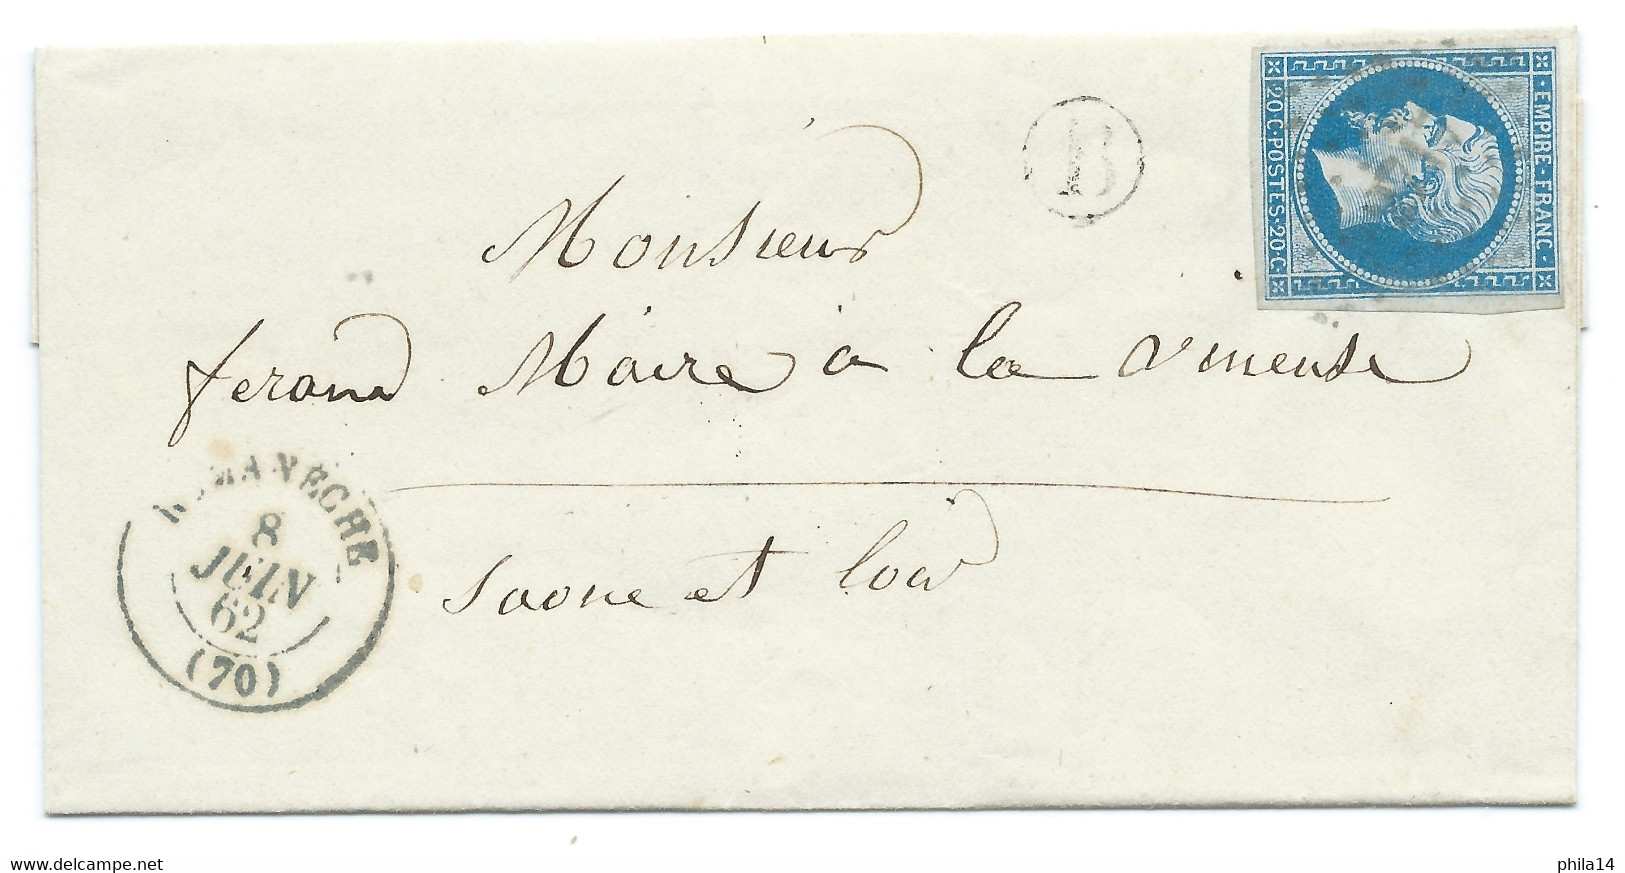 B
EMPIRE·FRANC·
20·C·POSTES·20·C·
Monsieur
ferand Maire à la vineuse
Saone et loir
ROMANÈCHE
8
JUIN
62
(70)
www.delcampe.net
phila14